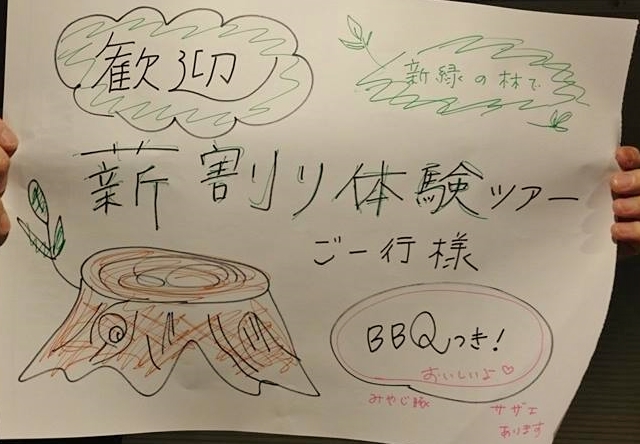 歓迎
新緑の林で
薪割り体験ツアー
ご一行様
BBQつき!
おいしいよ♡
みやじ豚
サザエ
あります